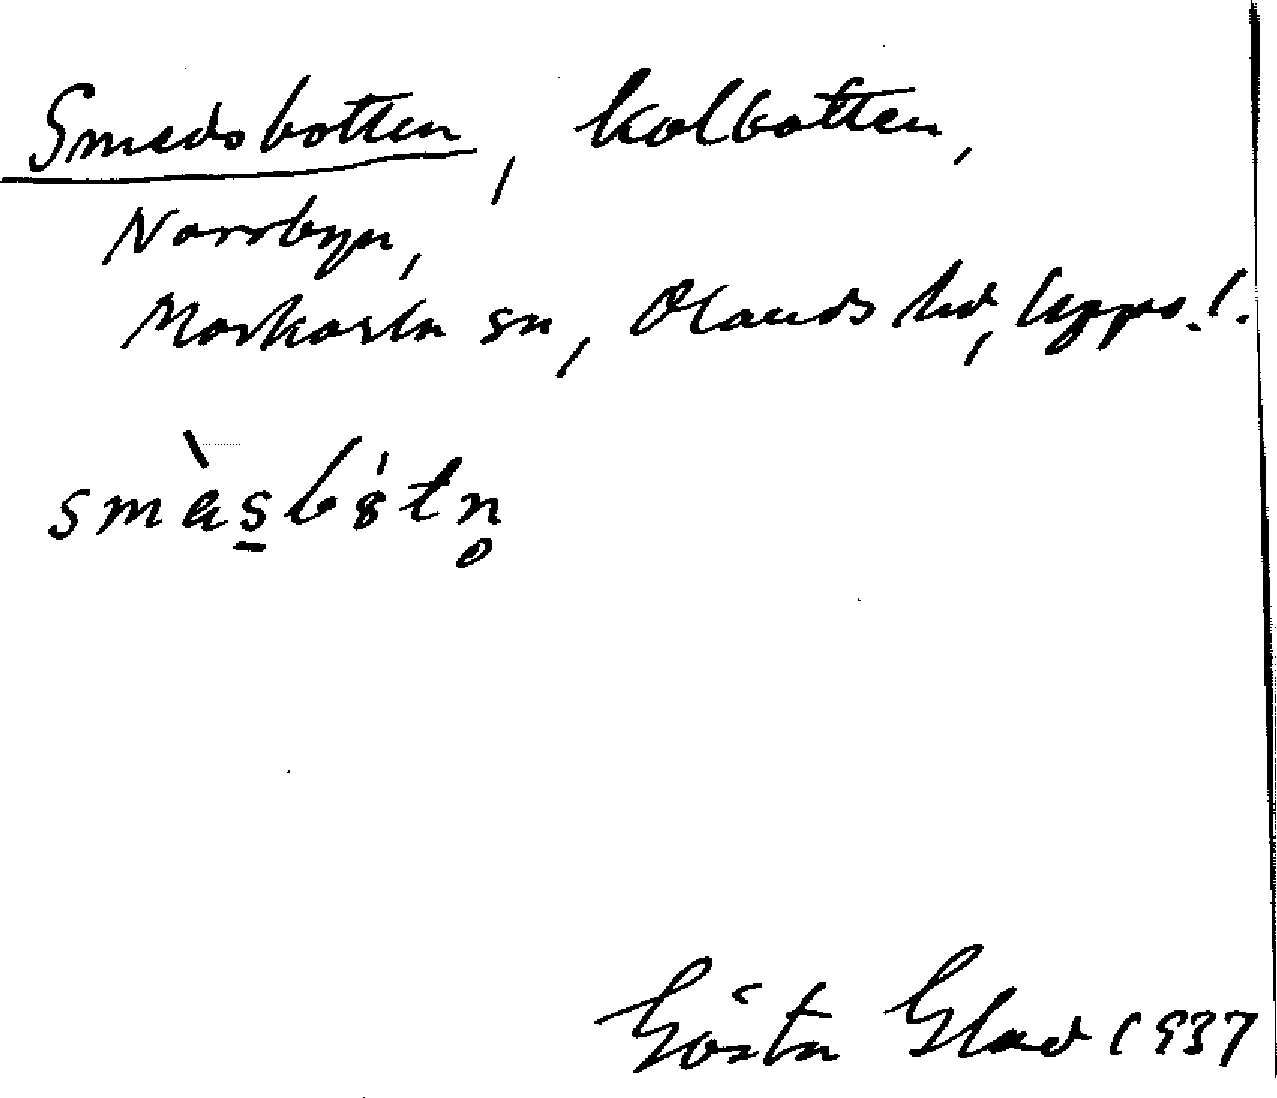 Smedsbotten, kolbotten,
Norrbyn,
Morkarla sn, Olands hd, Upps. l.
smèsbòtn̥
Gösta Glad 1937